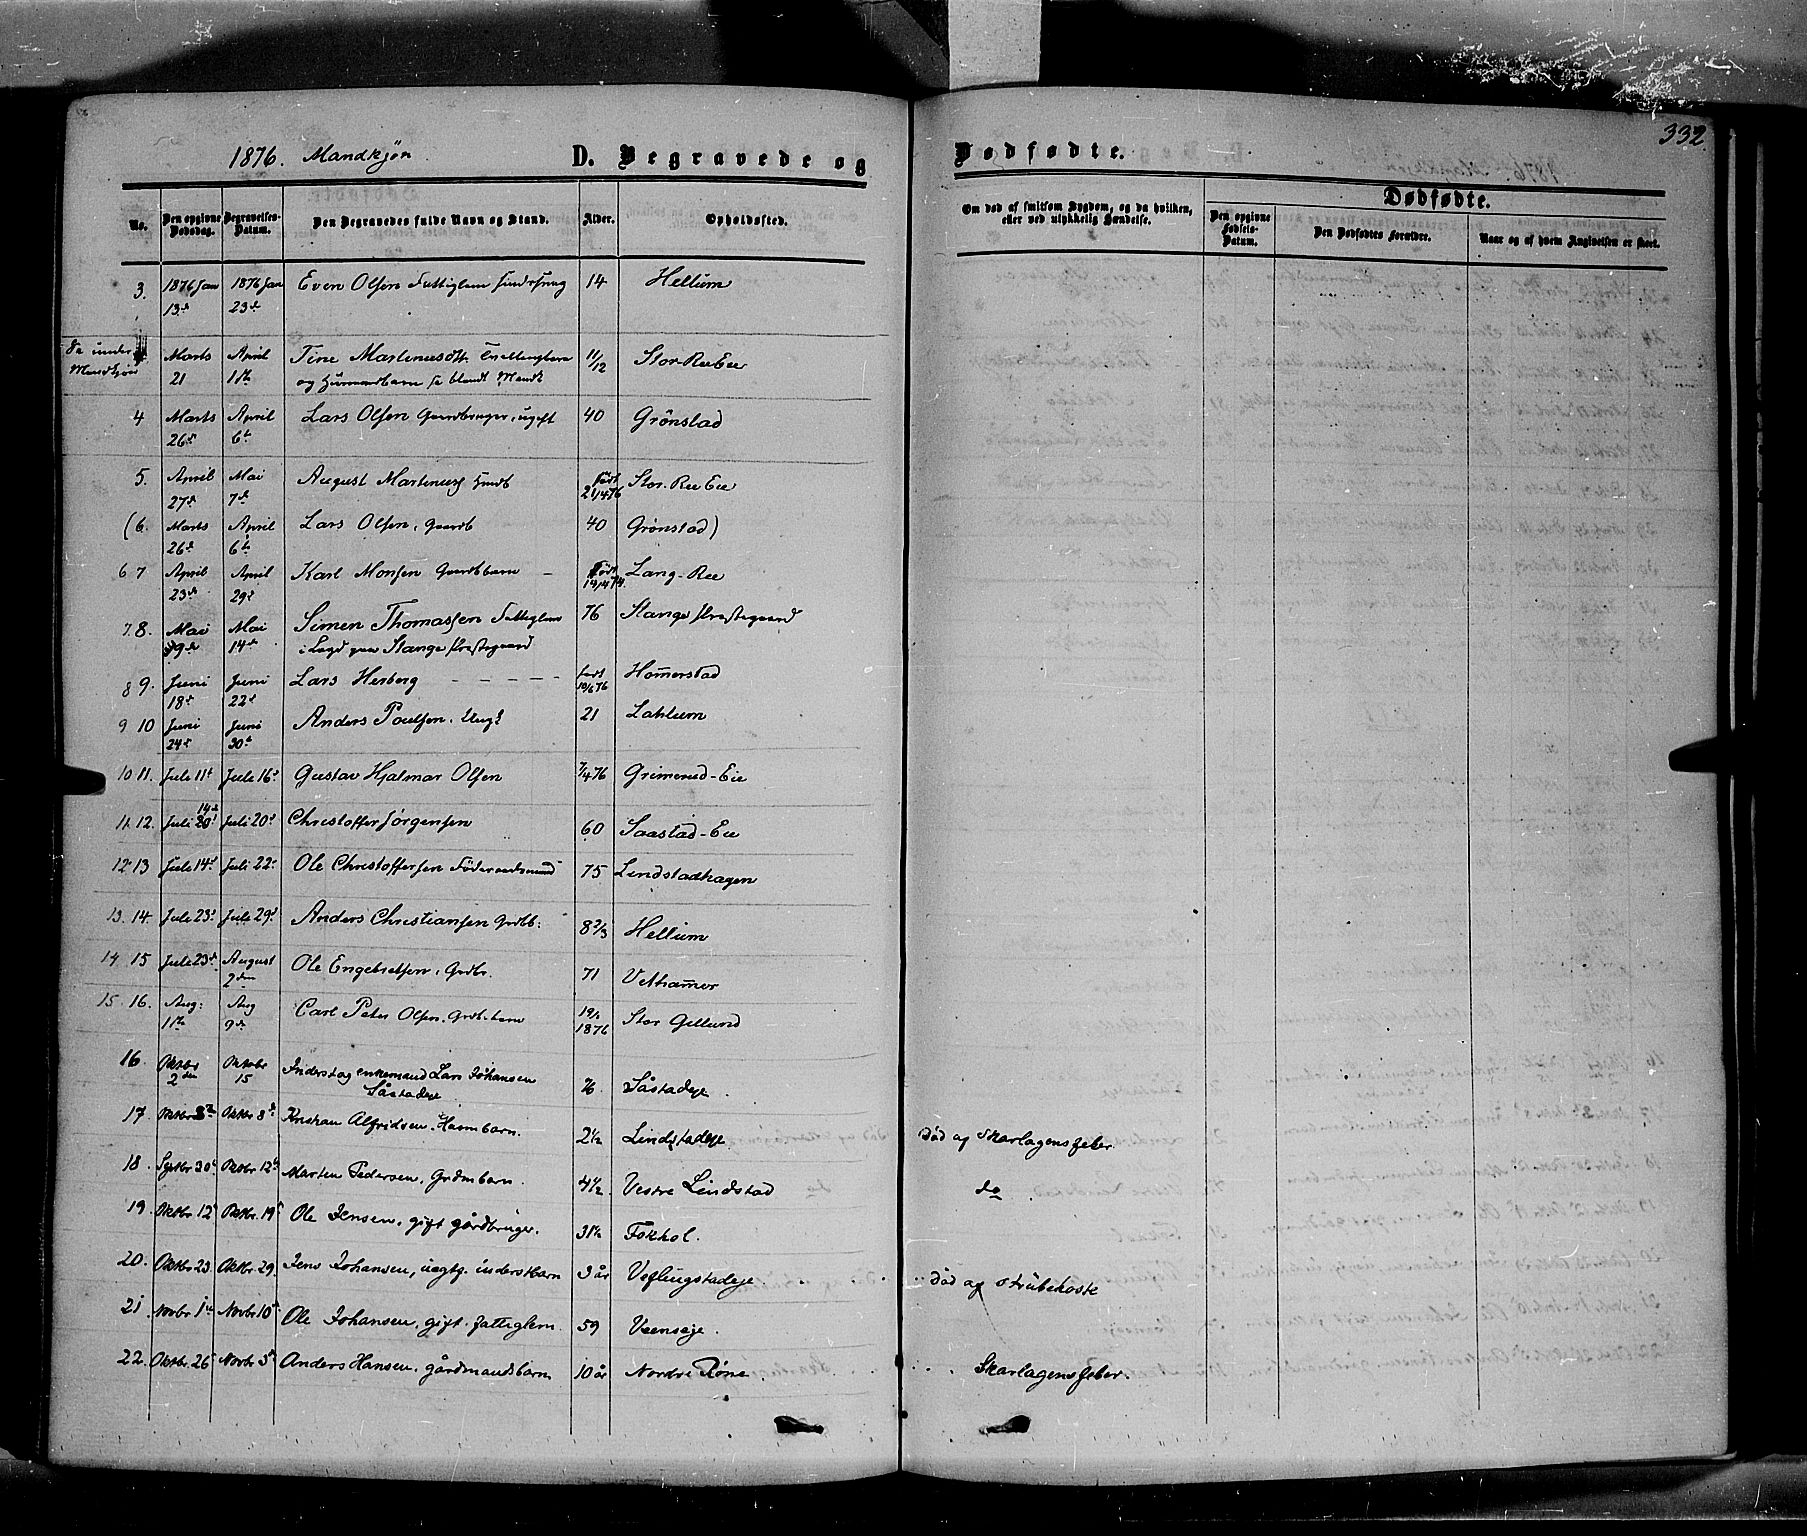 332
1876. Mandkjøn. D. Begravede og Dødfødte.
No. Den opgivne Dødsdag. Begravelses-Datum. Den Begravedes fulde Navn og Stand. Alder. Opholdssted. Om død af smitsom Sygdom, og da hvilken, eller ved ulykkelig Hændelse. Dødfødte. Den opgivne Fødsels-Datum. Den Dødfødtes Forældre. Naar og af hvem Angivelsen er skeet.
3. 1876 Jan 13de 1876 Jan 23de Even Olsen Fattiglem 14 Hellum
Se under Mandkjøn Marts 21 April 11te Tine Martinusdtr. og blandt Mandk 11/12 Stor-Ree Eie
4 Marts 26de April 6te Lars Olsen Gaardbruger, ugift 40 Grønstad
5. April 27de Mai 7de August Martinusen Født 21/4 76 Stor-Ree Eie
(6. Marts 26de April 6te Lars Olsen, Gaardb 40 Grønstad)
6 7 April 23de April 29de Karl Monsen Gaardbbarn – Født 14/4 74. Lang-Ree
7. 8. Mai 9de Mai 14de Simen Thomassen Fattiglem i Lægd paa Stange Præstegaard 76 Stange Præstegaard
8 9. Juni 18de Juni 22de Lars Herberg – – – – – født 10/6 76 Hommerstad
9 10 Juni 24de Juni 30te Anders Poulsen. Ungk 21 Lahlum
10 11. Juli 11t Juli 16d Gustav Hjalmar Olsen 7/4 76 Grimerud-Eie
11. 12. 14de Juli 20d Juli 20d Christoffer Jörgensen 60 Saastad-Eie
12. 13 Juli 14d Juli 22d Ole Christoffersen Føderaadsmand 75 Lindstadhagen
13. 14. Juli 23d Juli 29d Anders Christiansen Grdb: 8 2/3 Hellum
14 15 Juli 23de August 2den Ole Engebretsen, Grdbr. 71 Vethammer
15. 16. Aug: 11te Aug 9de Carl Peter Olsen, Grdb.barn 19/1 1876 Stor Gillund
16. Oktbr 2den Oktobr 15 Inderst og enkemand Lars Johansen Såstadeje 76 Såstadeje.
17. Oktbr 3die Oktbr 8de Kristian Alfridsen, Husmbarn. 2 1/2 Lindstadeje død af Skarlagensfeber.
18. Septbr 30te Oktbr 12te Marten Pedersen, Grdmbarn. 4 1/2 Vestre Lindstad do
19. Oktbr 12te Oktbr. 19de Ole Jensen, gift gårdbruger. 31 1/2 Fokhol.
20. Oktbr 23. Oktbr. 29. Jens Johansen, uægtg. inderstbarn 3 år Veflingstadeje død af strubehoste
21 Novbr 1ste Novbr 10de Ole Johansen, gift. fattiglem. 59 Veenseje.
22. Oktbr 26 Novbr 5te Anders Hansen, gårdmandsbarn 10 år Nordre Røne. Skarlagensfeber.